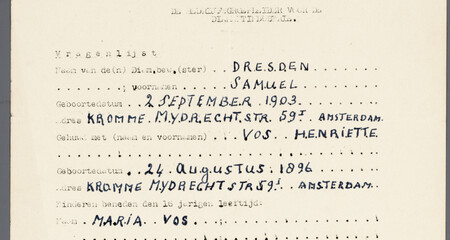 DE BEDRIJFSVERTEGENWOORDIGER VOOR DE
DIAMANTINDUSTRIE.
Vragenlijst
Naam van de(n) Diam.bew.(ster) . . DRESDEN . . . . . .
. . . . . . . . ; voornamen . . . . SAMUEL . . . . . .
Geboortedatum . . 2 SEPTEMBER 1903. . . . . . . .
adres KROMME. MYDRECHT. STR. 59I AMSTERDAM.
Gehuwd met (naam en voornamen) . . . VOS . . HENRIETTE
Geboortedatum . . 24. Augustus. 1896 . . . . .
adres KROMME MYDRECHT STR 59I . . AMSTERDAM.
Kinderen beneden den 16 jarigen leeftijd:
Naam . . MARIA . VOS . . . . .